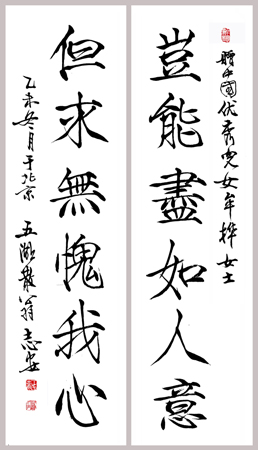 赠中国优秀儿女年桦女士
豈能盡如人意
但求無愧我心
乙未冬月于北京
五湖散翁志安